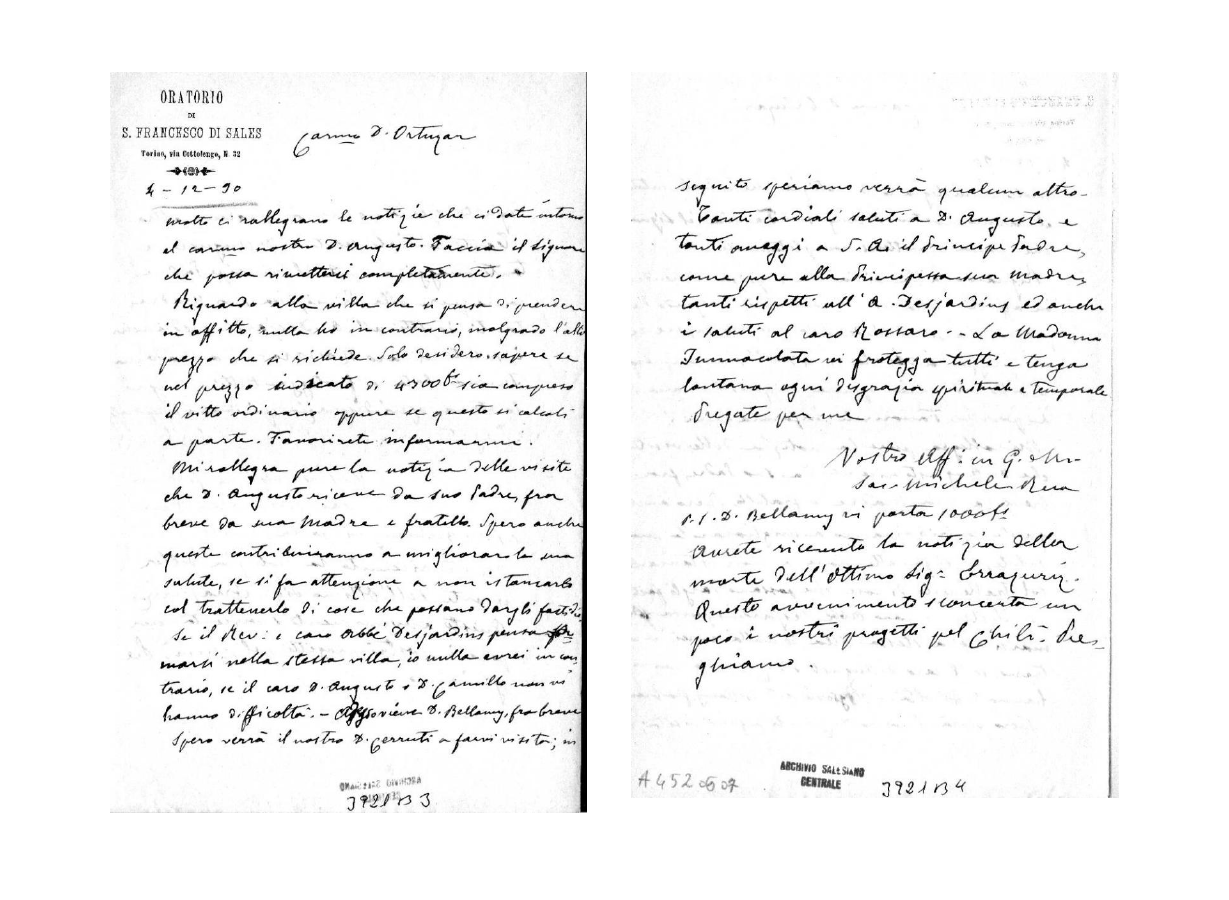 ORATORIO
DI
S. FRANCESCO DI SALES
Torino, via Cottolengo, N 32
4-12-90
Carmo D. Ortuzar
Molto ci rallegrano le notizie che ci date intorno
al carmo nostro D. Augusto. Faccia il Signore
che possa rimettersi completamente.
Riguardo alla villa che si pensa di prendere
in affitto, nulla ho in contrario, malgrado l'alto
prezzo che si richiede. Solo desidero sapere se
nel prezzo indicato di 4300 f sia compreso
il vitto ordinario oppure se questo si calcoli
a parte. Favorirete informarmi.
Mi rallegra pure la notizia delle visite
che D. Augusto riceve da suo Padre, fra
breve da sua Madre e fratello. Spero anche
queste contribuiranno a migliorare la sua
salute, se si fa attenzione a non istancarlo
col trattenerlo di cose che possano dargli fastidio.
Se il Rev: e caro Abbé Desjardins pensa fer
marsi nella stessa villa, io nulla avrei in con
trario, se il caro D. Augusto e D. Camillo non vi
hanno difficoltà. - Oggi viene D. Bellamy, fra breve
spero verrà il nostro D. Cerruti a farvi visita; in
ARCHIVIO SALESIANO
CENTRALE
3921 B 3
seguito speriamo verrà qualcun altro.
Tanti cordiali saluti a D. Augusto, e
tanti omaggi a S. A. il Principe Padre,
come pure alla Principessa sua madre,
tanti rispetti all'A. Desjardins ed anche
i saluti al caro Rossaro. - La Madonna
Immacolata vi protegga tutti e tenga
lontana ogni disgrazia spirituale e temporale
Pregate per me
Vostro Aff: in G. e M.
Sac. Michele Rua
P.S. D. Bellamy vi porta 1000 fr
Avrete ricevuto la notizia della
morte dell'ottimo Sig. Errazuriz.
Questo avvenimento sconcerta un
poco i nostri progetti pel Chilì. Pre-
ghiamo.
ARCHIVIO SALESIANO
CENTRALE
A 452 05 07
3921 B 4